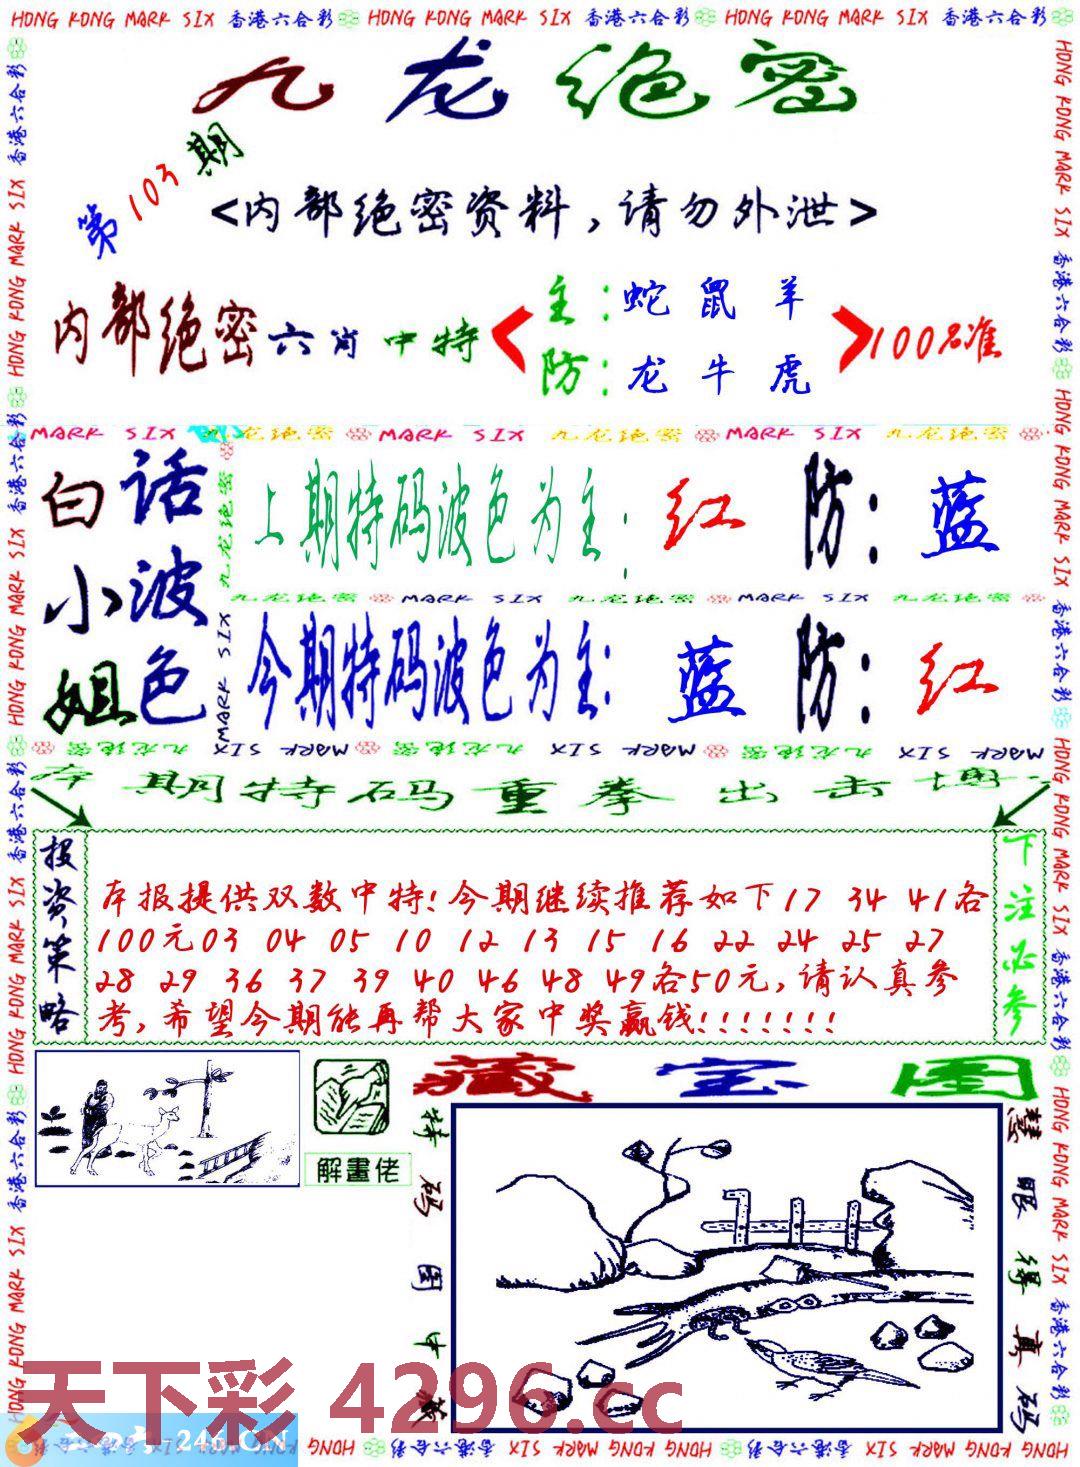 HONG KONG MARK SIX 香港六合彩 HONG KONG MARK SIX 香港六合彩 HONG KONG MARK SIX 香港六合彩
九龙绝密
第103期
<内部绝密资料,请勿外泄>
内部绝密六肖中特
主:蛇 鼠 羊
防:龙 牛 虎
100%准
MARK SIX 九龙绝密 MARK SIX 九龙绝密 MARK SIX 九龙绝密
白话
小波
姐色
上期特码波色为主: 红 防: 蓝
九龙绝密 MARK SIX 九龙绝密 MARK SIX 九龙绝密
今期特码波色为主: 蓝 防: 红
九龙绝密 MARK SIX 九龙绝密 MARK SIX 九龙绝密 MARK SIX 九龙绝密 MARK SIX
本期特码重拳出击博
投资策略
本报提供双数中特!今期继续推荐如下17 34 41各
100元03 04 05 10 12 13 15 16 22 24 25 27
28 29 36 37 39 40 46 48 49各50元,请认真参
考,希望今期能再帮大家中奖赢钱!!!!!!!
下注必参
解畫佬
藏宝图
特码图中藏
慧眼得真码
天下彩 4296.cc
246.CN
HONG KONG MARK SIX 香港六合彩